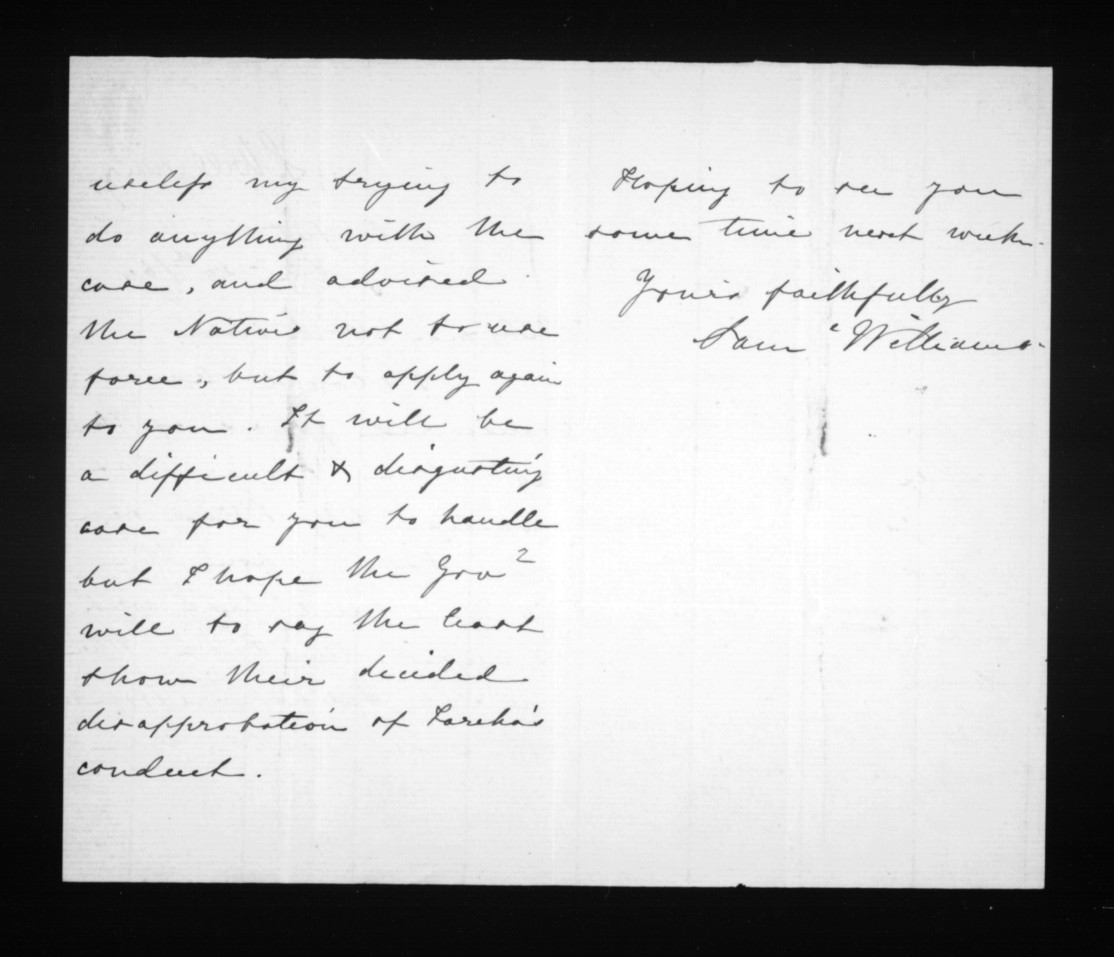 useless my trying to
do anything with the
case, and advised
the Natives not to use
force, but to apply again
to you. It will be
a difficult & disgusting
case for you to handle
but I hope the Govt
will to say the least
show their decided
disapprobation of Tareha's
conduct.
Hoping to see you
some time next week.
Yours faithfully
Saml Williams.